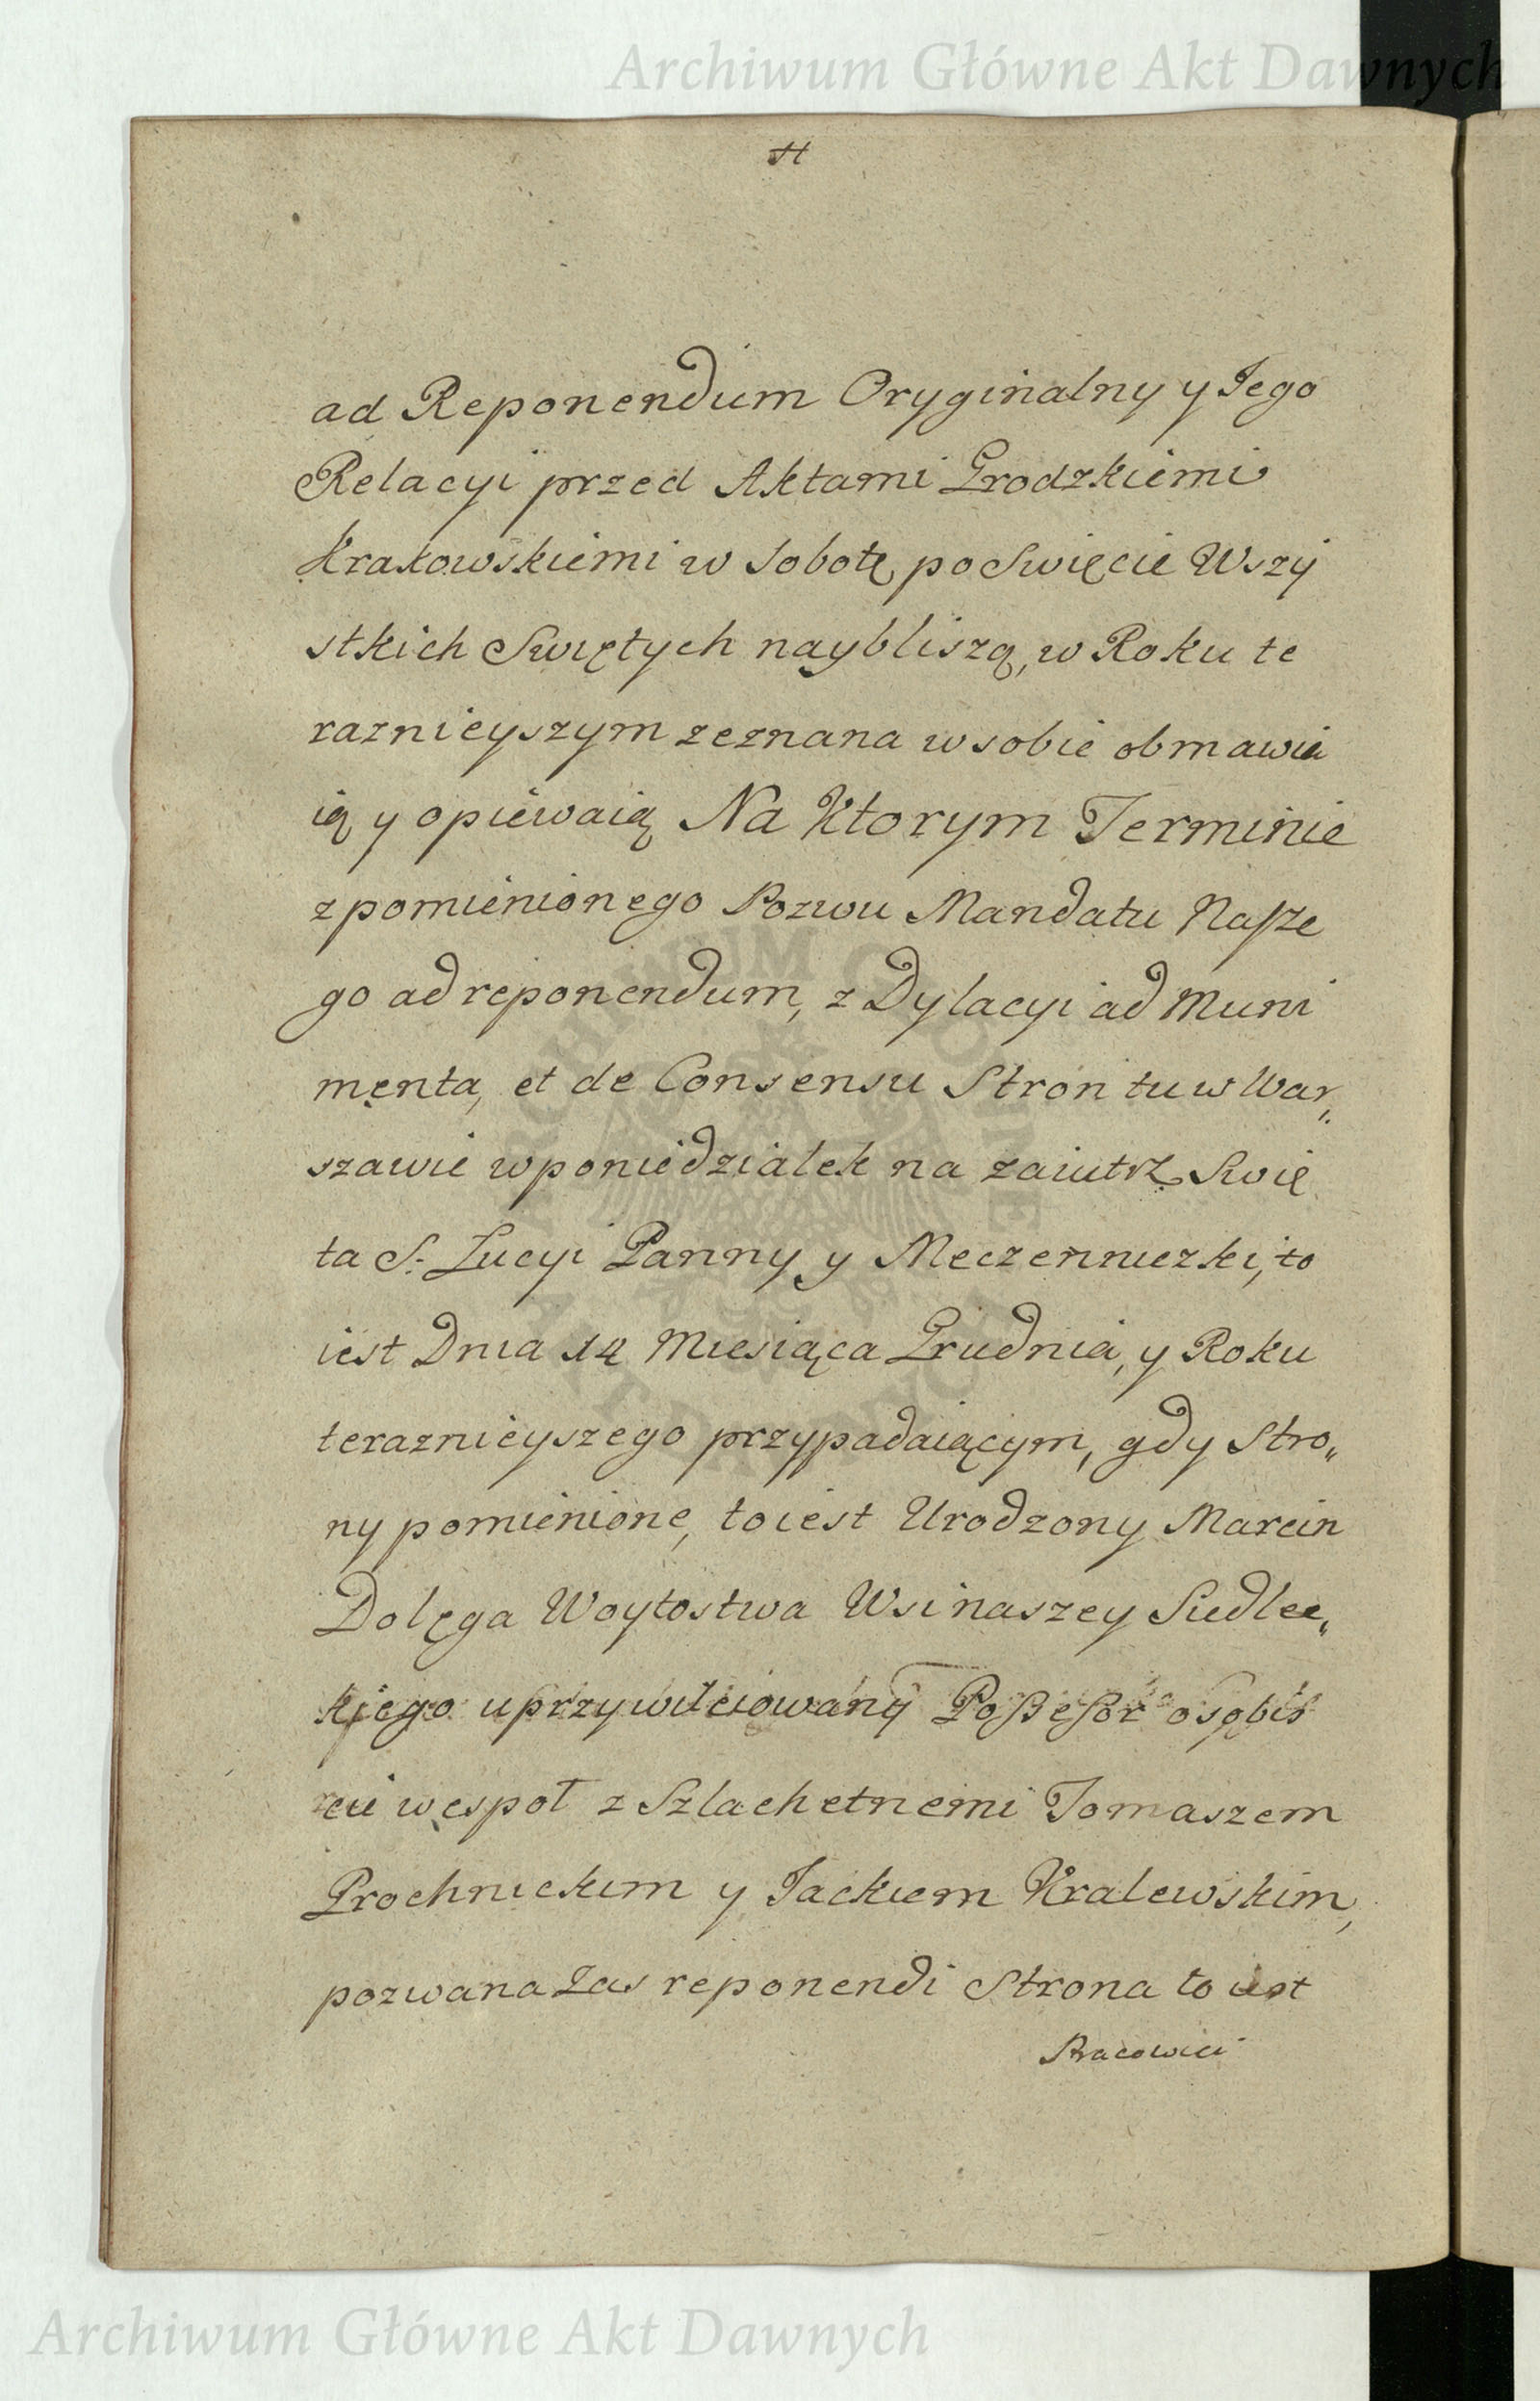 Archiwum Główne Akt Dawnych
ad Reponendum Oryginalny y Jego
Relacyi przed Aktami Grodzkiemi
Krakowskiemi w Sobotę po Swięcie Wszy
stkich Swiętych naybliszą, w Roku te
raznieyszym zeznana w sobie obmawia
ią y opiewaią Na Ktorym Terminie
z pomienionego Pozwu Mandatu Nasze
go ad reponendum, z Dylacyi ad Muni
menta, et de Consensu Stron tu w War„
szawie w poniedzialek na zaiutrz Swię
ta S. Lucyi Panny y Meczenniczki, to
iest Dnia 14 Miesiąca Grudnia, y Roku
teraznieyszego przypadaiącym, gdy Stro„
ny pomienione, to iest Urodzony Marcin
Dolęga Woytostwa Wsi naszey Siedlec„
kiego uprzywileiowany Possessor osobis
cie wespoł z Szlachetnemi Tomaszem
Prochnickim y Jackiem Kralewskim,
pozwana zas reponendi Strona to iest
Pracowici
ARCHIWUM GŁÓWNE AKT DAWNYCH
Archiwum Główne Akt Dawnych